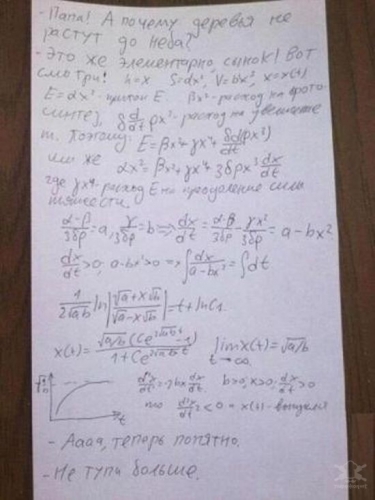 - Папа! А почему деревья не
растут до неба?
- Это же элементарно, сынок! Вот
смотри! h=x S=αx², V=bx³, x=x(t)
E=αx²-приток E. βx²-расход на фото-
синтез, δ d/dt ρx³-расход на увеличение
m. Поэтому: E=βx²+γx⁴+δd/dt(ρx³)
или же αx²=βx²+γx⁴+3δρx² dx/dt
где γx⁴-расход E на преодоление силы
тяжести.
(α-β)/3δρ=a, γ/3δρ=b => dx/dt=(α-β)/3δρ-γx²/3δρ=a-bx²
dx/dt>0; a-bx²>0 => ∫dx/(a-bx²)=∫dt
1/(2√ab) ln|(√a+x√b)/(√a-x√b)|=t+lnC₁
x(t)=√a/b(Ce^(2√ab t)-1)/(1+Ce^(2√ab t)) lim x(t)=√a/b
t→∞
√a/b d²x/dt²=-2bx dx/dt. b>0; x>0; dx/dt>0
t то d²x/dt²<0 и x(t)-выпуклая
- Аааа, теперь понятно.
- Не тупи больше.